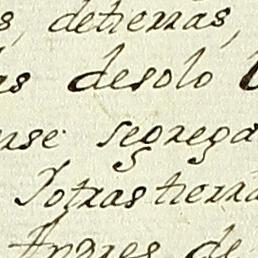 s, detierras,
as desolo
rse segrega
Yotras tierra
Andres de